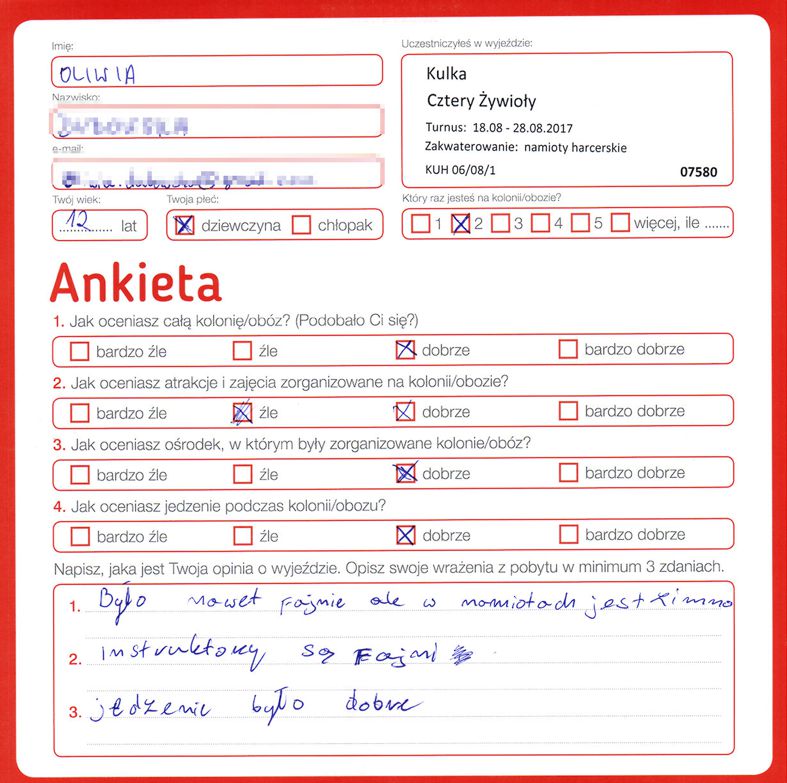 Imię:
Uczestniczyłeś w wyjeździe:
OLIWIA
Kulka
Cztery Żywioły
Turnus: 18.08 - 28.08.2017
Zakwaterowanie: namioty harcerskie
KUH 06/08/1 07580
Nazwisko:
e-mail:
Twój wiek:
Twoja płeć:
Który raz jesteś na kolonii/obozie?
12 lat
dziewczyna chłopak
1 2 3 4 5 więcej, ile .......
Ankieta
1. Jak oceniasz całą kolonię/obóz? (Podobało Ci się?)
bardzo źle źle dobrze bardzo dobrze
2. Jak oceniasz atrakcje i zajęcia zorganizowane na kolonii/obozie?
bardzo źle źle dobrze bardzo dobrze
3. Jak oceniasz ośrodek, w którym były zorganizowane kolonie/obóz?
bardzo źle źle dobrze bardzo dobrze
4. Jak oceniasz jedzenie podczas kolonii/obozu?
bardzo źle źle dobrze bardzo dobrze
Napisz, jaka jest Twoja opinia o wyjeździe. Opisz swoje wrażenia z pobytu w minimum 3 zdaniach.
1. Było nawet fajnie ale w namiotach jest zimno
2. instruktorzy są Fajni
3. jedzenie było dobre